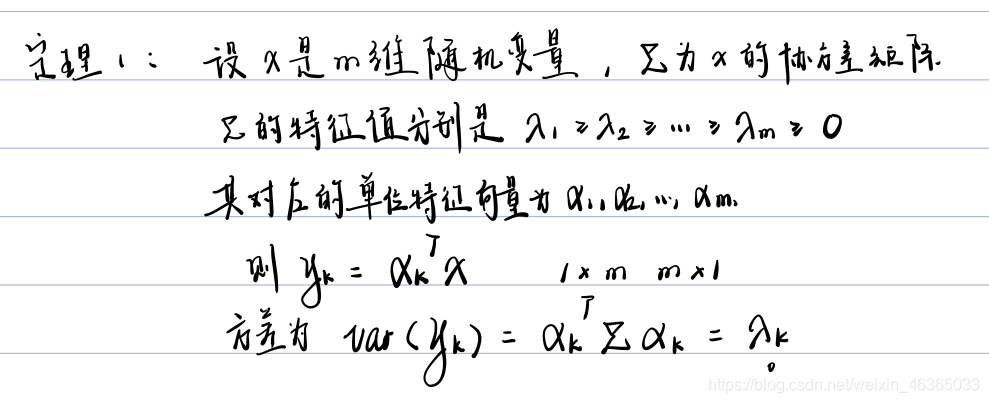 定理1： 设x是m维随机变量，Σ为x的协方差矩阵.
Σ的特征值分别是 λ₁ ≥ λ₂ ≥ … ≥ λm ≥ 0
其对应的单位特征向量为 α₁, α₂, …, αm.
则 yₖ = αₖᵀ x 1×m m×1
方差为 var(yₖ) = αₖᵀ Σ αₖ = λₖ
https://blog.csdn.net/weixin_46365033